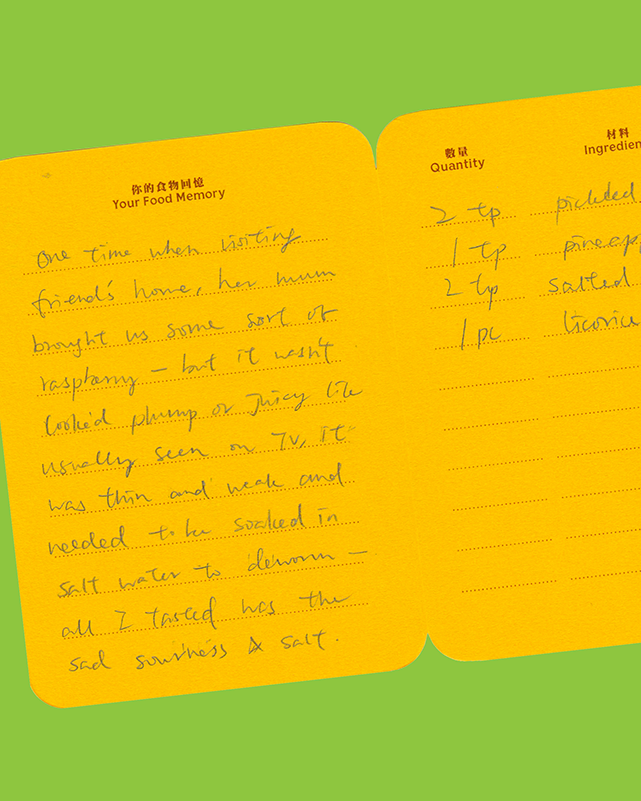 你的食物回憶
Your Food Memory
One time when visiting
friend's home, her mum
brought us some sort of
raspberry — but it wasn't
looked plump or juicy like
usually seen on TV, it
was thin and weak and
needed to be soaked in
salt water to deworm —
all I tasted was the
sad sourness & salt.
數量 材料
Quantity Ingredien
2 tp pickled
1 tp pineapp
2 tp salted
1 pc licorice